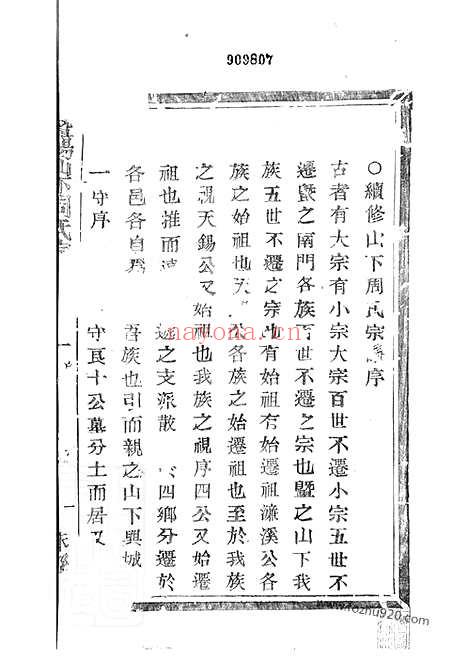 909807
○續修山下周氏宗譜序
古者有大宗有小宗大宗百世不遷小宗五世不
遷暨之南門各族百世不遷之宗也暨之山下我
族五世不遷之宗也有始祖有始遷祖濂溪公各
族之始祖也天錫公各族之始遷祖也至於我族
之視天錫公又始祖也我族之視序四公又始遷
祖也推而遠 遙之支派散 四鄉分遷於
各邑各自為 吾族也引而親之山下與城
一守序 守良十公墓分土而居又
暨陽山下周氏宗
nayona.cn
www.fozhu920.com